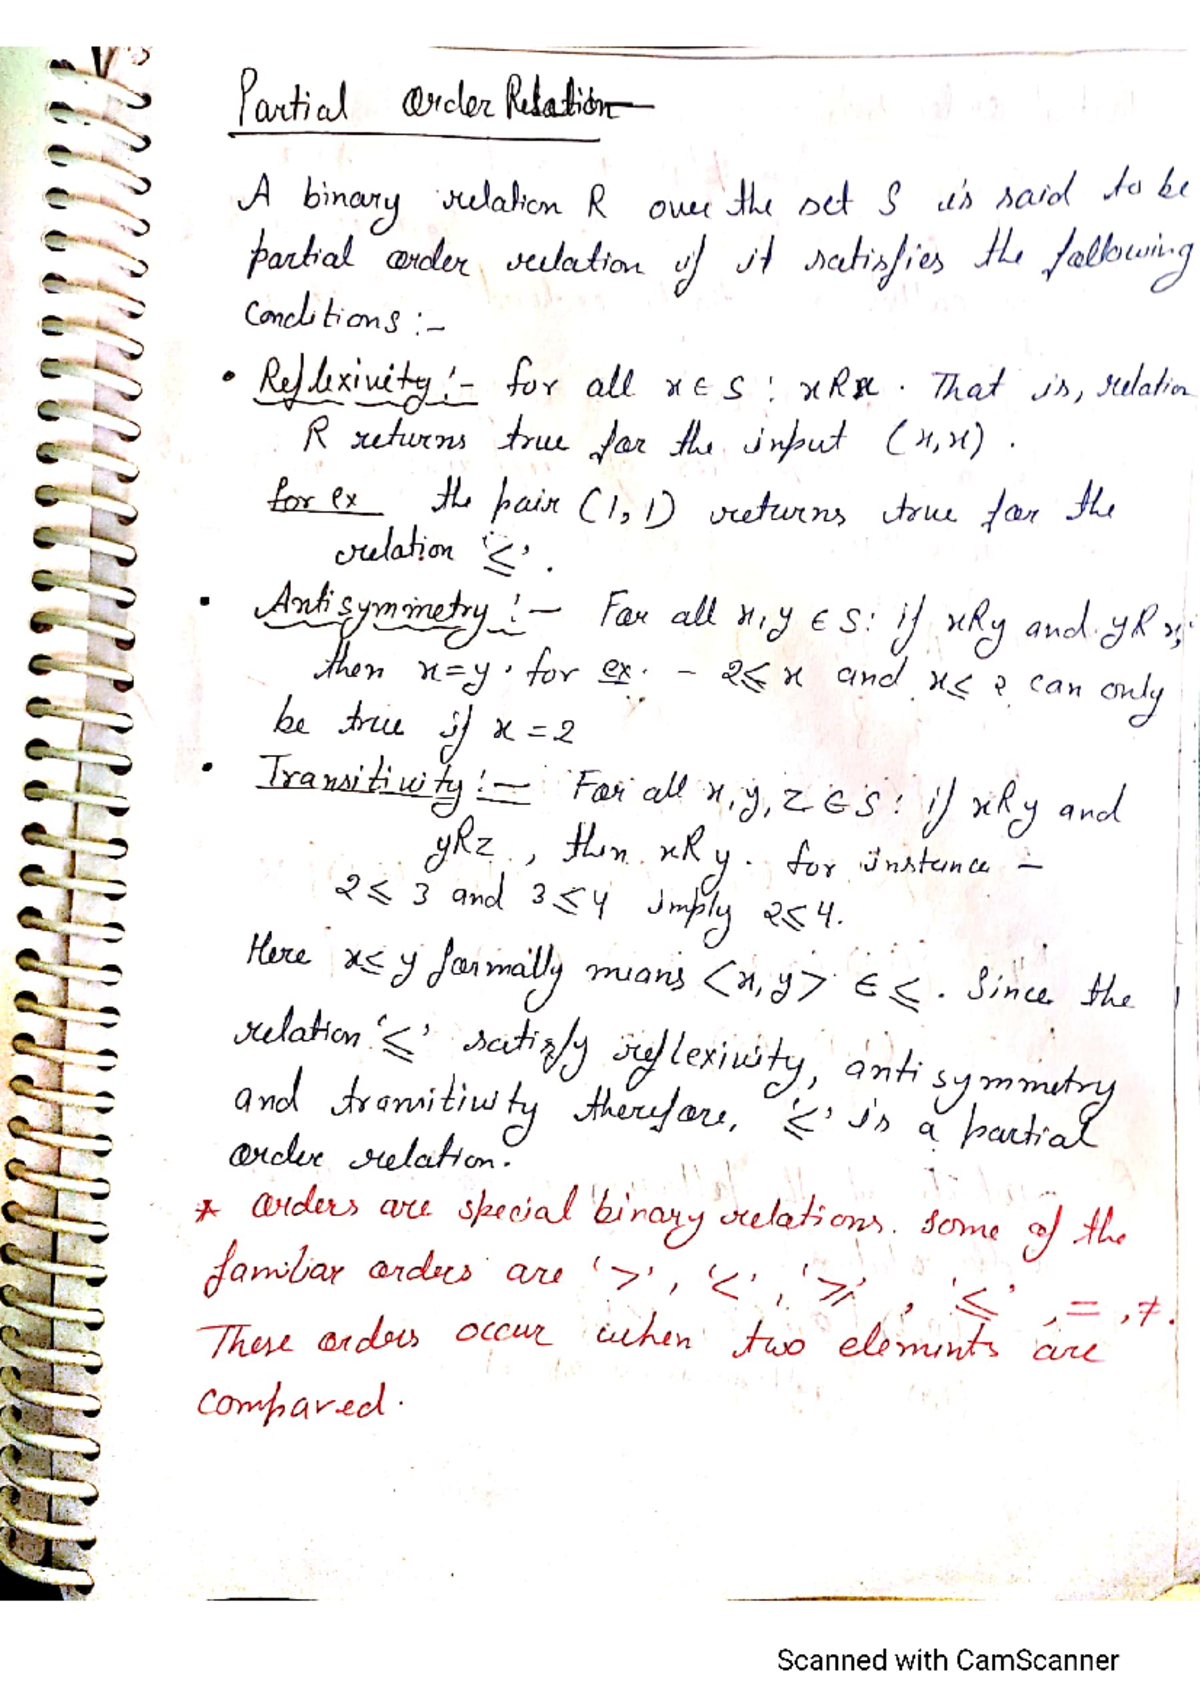 Partial order Relation
A binary relation R over the set S is said to be
partial order relation if it satisfies the following
Conditions :-
• Reflexivity :- for all x ∈ S : xRx . That is, relation
R returns true for the input (x,x) .
for ex the pair (1,1) returns true for the
relation '≤' .
• Antisymmetry :- For all x,y ∈ S: if xRy and yRx,
then x=y. for ex. - 2≤ x and x≤ 2 can only
be true if x = 2
• Transitivity :- For all x,y,z ∈ S : if xRy and
yRz , then xRy. for instance -
2≤ 3 and 3≤4 imply 2≤4.
Here x≤ y formally means <x,y> ∈ ≤. Since the
relation '≤' satisfy reflexivity, anti symmetry
and transitivity therefore, '≤' is a partial
order relation.
* orders are special binary relations. some of the
familiar orders are '>', '<', '≥', '≤', =, ≠.
These orders occur when two elements are
compared.
Scanned with CamScanner